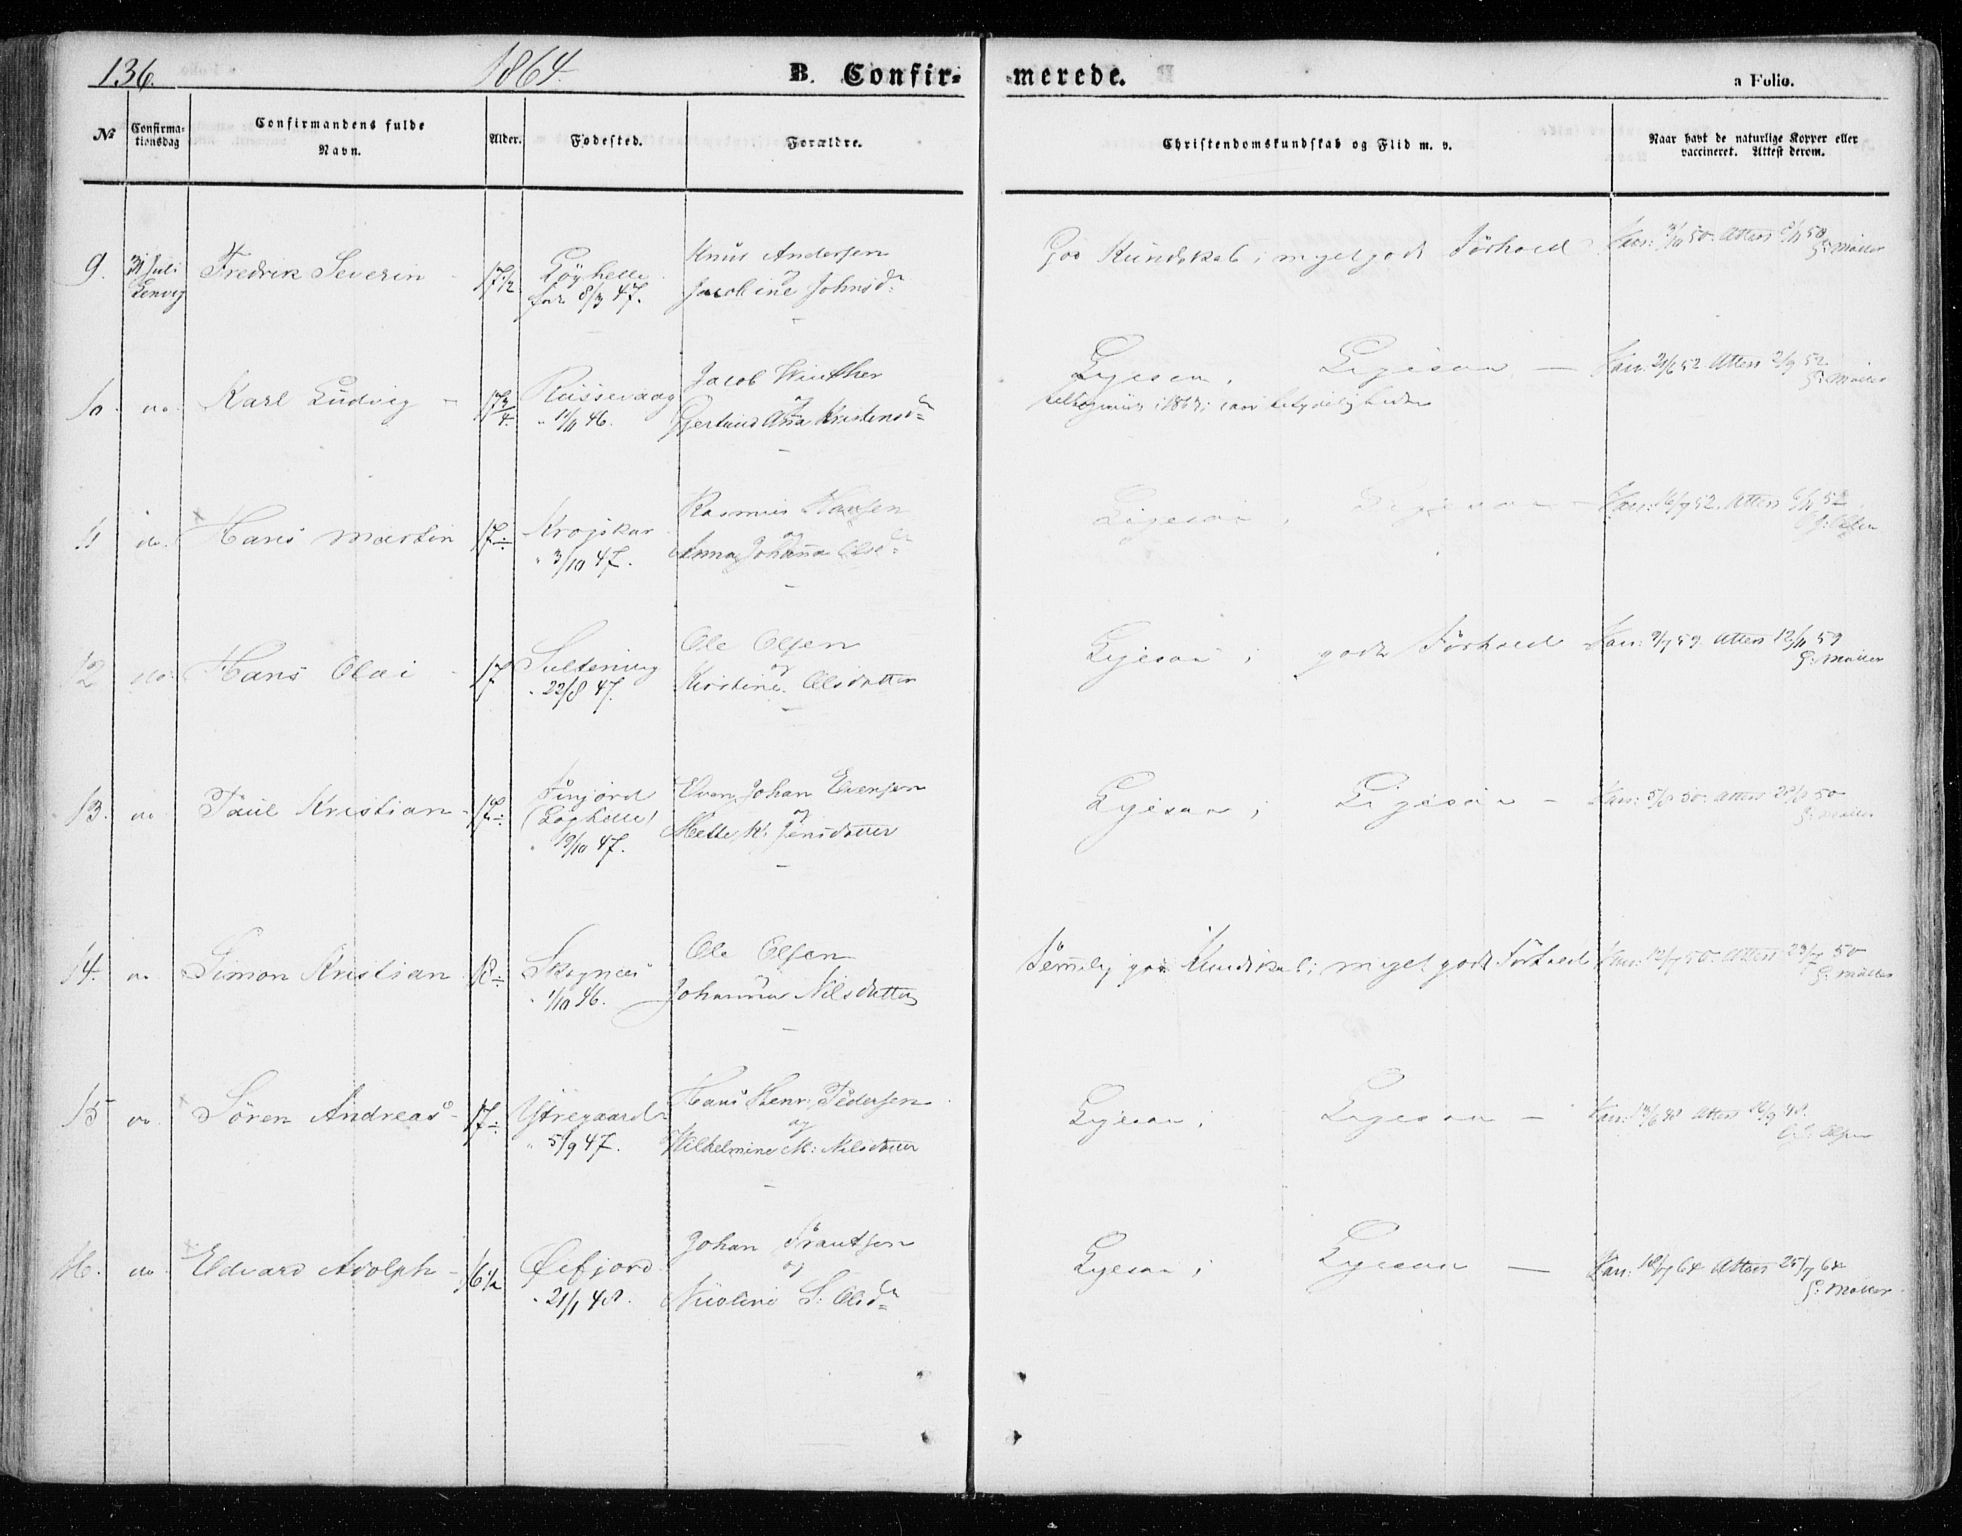 136.
1864.
B. Confir-
merede.
a Folio.
No
Confirma-
tionsdag
Confirmandens fulde
Navn.
Alder.
Fødested.
Forældre.
Christendomskundskab og Flid m. v.
Naar havt de naturlige Kopper eller
vaccineret. Attest derom.
9. 31 Juli Fredrik Severin 17 1/2 Knud Andersen
og
8/3 47. Jacobine Johnsd.
God Kundskab; meget godt Forhold
50. Attest 50
G: Møller
10. do. Karl Ludvig 17 3/4 Russevaag Jacob Winther
og
11/11 46. Kristensd.
Ligesaa, Ligesaa
52 Attest 2/9 52
G: Møller
11 do. Hans Martin 17 Krogskar Rasmus Hansen
og
3/10 47. Anna Johanna Olsd.
Ligesaa, Ligesaa
Vac: 16/9 52. Attest 52
Olsen
12 do. Hans Olai 17 Ole Olsen
og
22/8 47. Kristine Olsdatter
Ligesaa; godt Forhold
Vac: 59. Attest 12/11 59
G: Møller
13. do. Paul Kristian 17 Finjord Even Johan Evensen
og
19/10 47. Mette K. Jensdatter
Ligesaa; Ligesaa
Vac: 50. Attest 50
G: Møller
14. do. Simon Kristian 18 Skognes Ole Olsen
1/10 46. Johanna Nilsdatter
Temelig god Kundskab; meget godt Forhold
Vac: 12/7 50. Attest 23/7 50
G: Møller
15 do. Søren Andreas 17 Ytregaard Hans Henr: Pedersen
og
5/9 47. Wilhelmine M: Nilsdatter
Ligesaa; Ligesaa
Vac: 48 Attest 48.
Olsen
16. do. Edvard Adolph 16 1/2 Øifjord Johan Frantsen
og
21/1 48. Nicoline S. Olsd.
Ligesaa; Ligesaa
Vac: 18/7 64 Attest 25/7 64
G: Møller